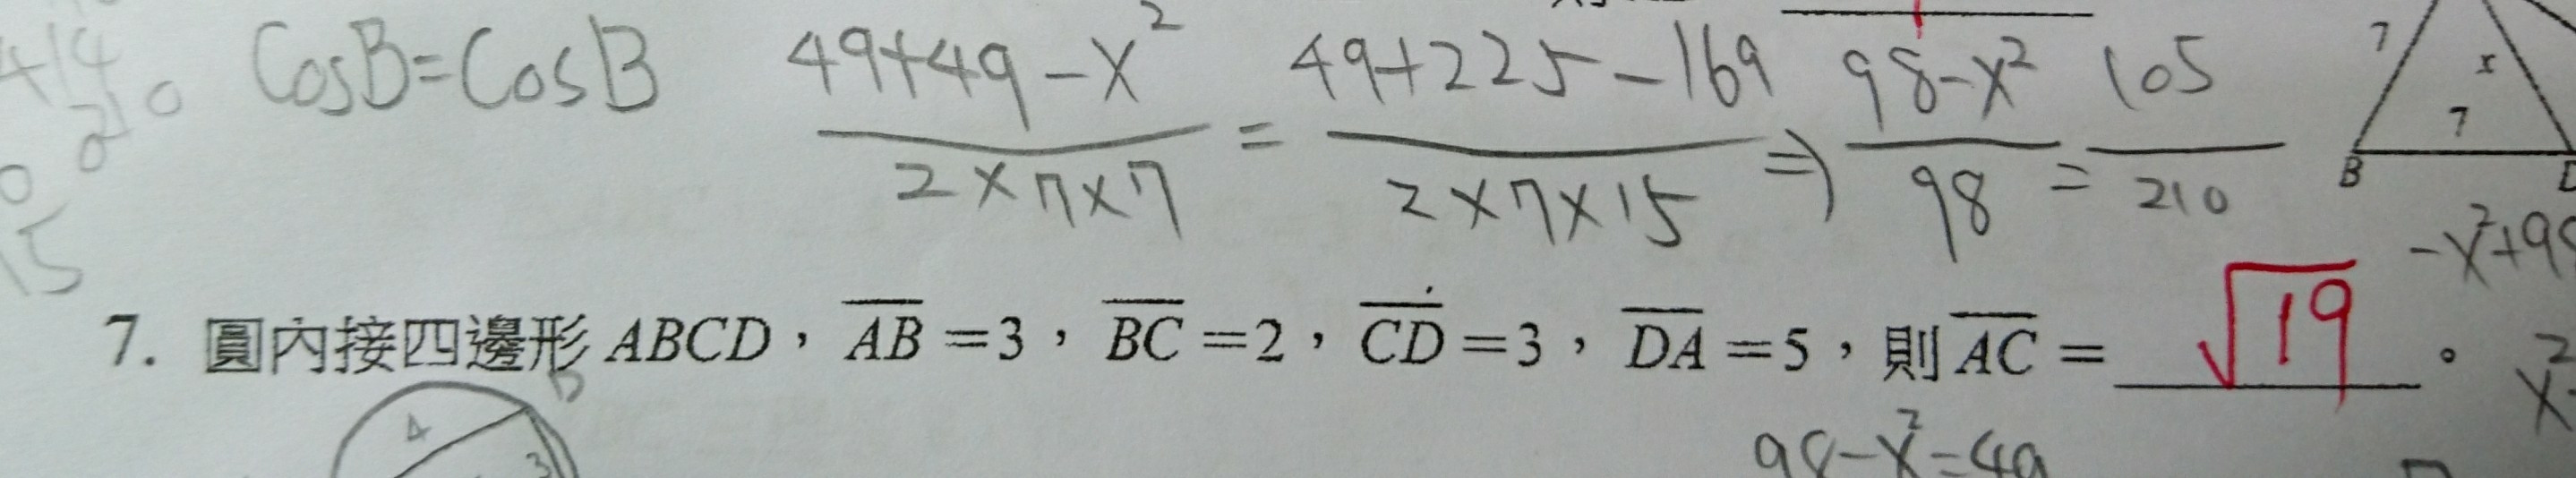 414
210
0
0
15
CosB=CosB
49+49-x²/2×7×7 = 49+225-169/2×7×15 ⇒ 98-x²/98 = 105/210
7
x
7
B
-x²+98
7. 圓內接四邊形 ABCD，AB=3，BC=2，CD=3，DA=5，則 AC= √19 。
D
4
3
98-x²=49
x²